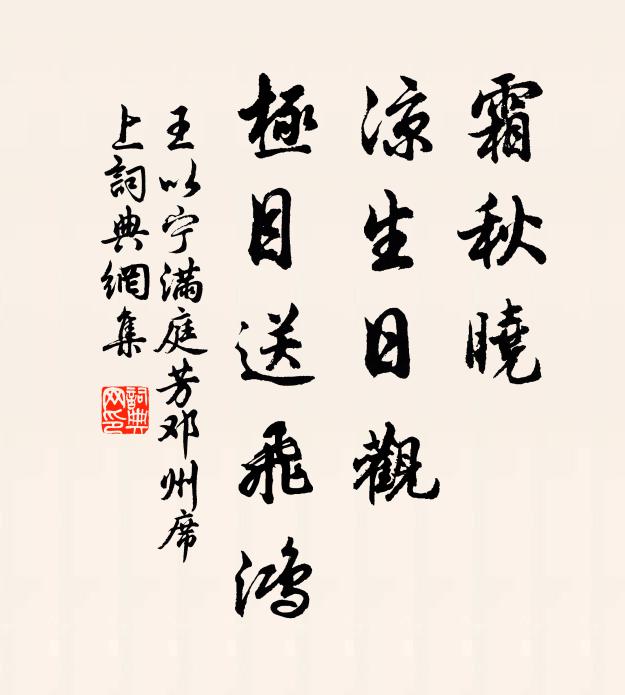 霜秋曉
涼生日觀
極目送飛鴻
王以宁滿庭芳邓州席
上詞典網集
詞典网印